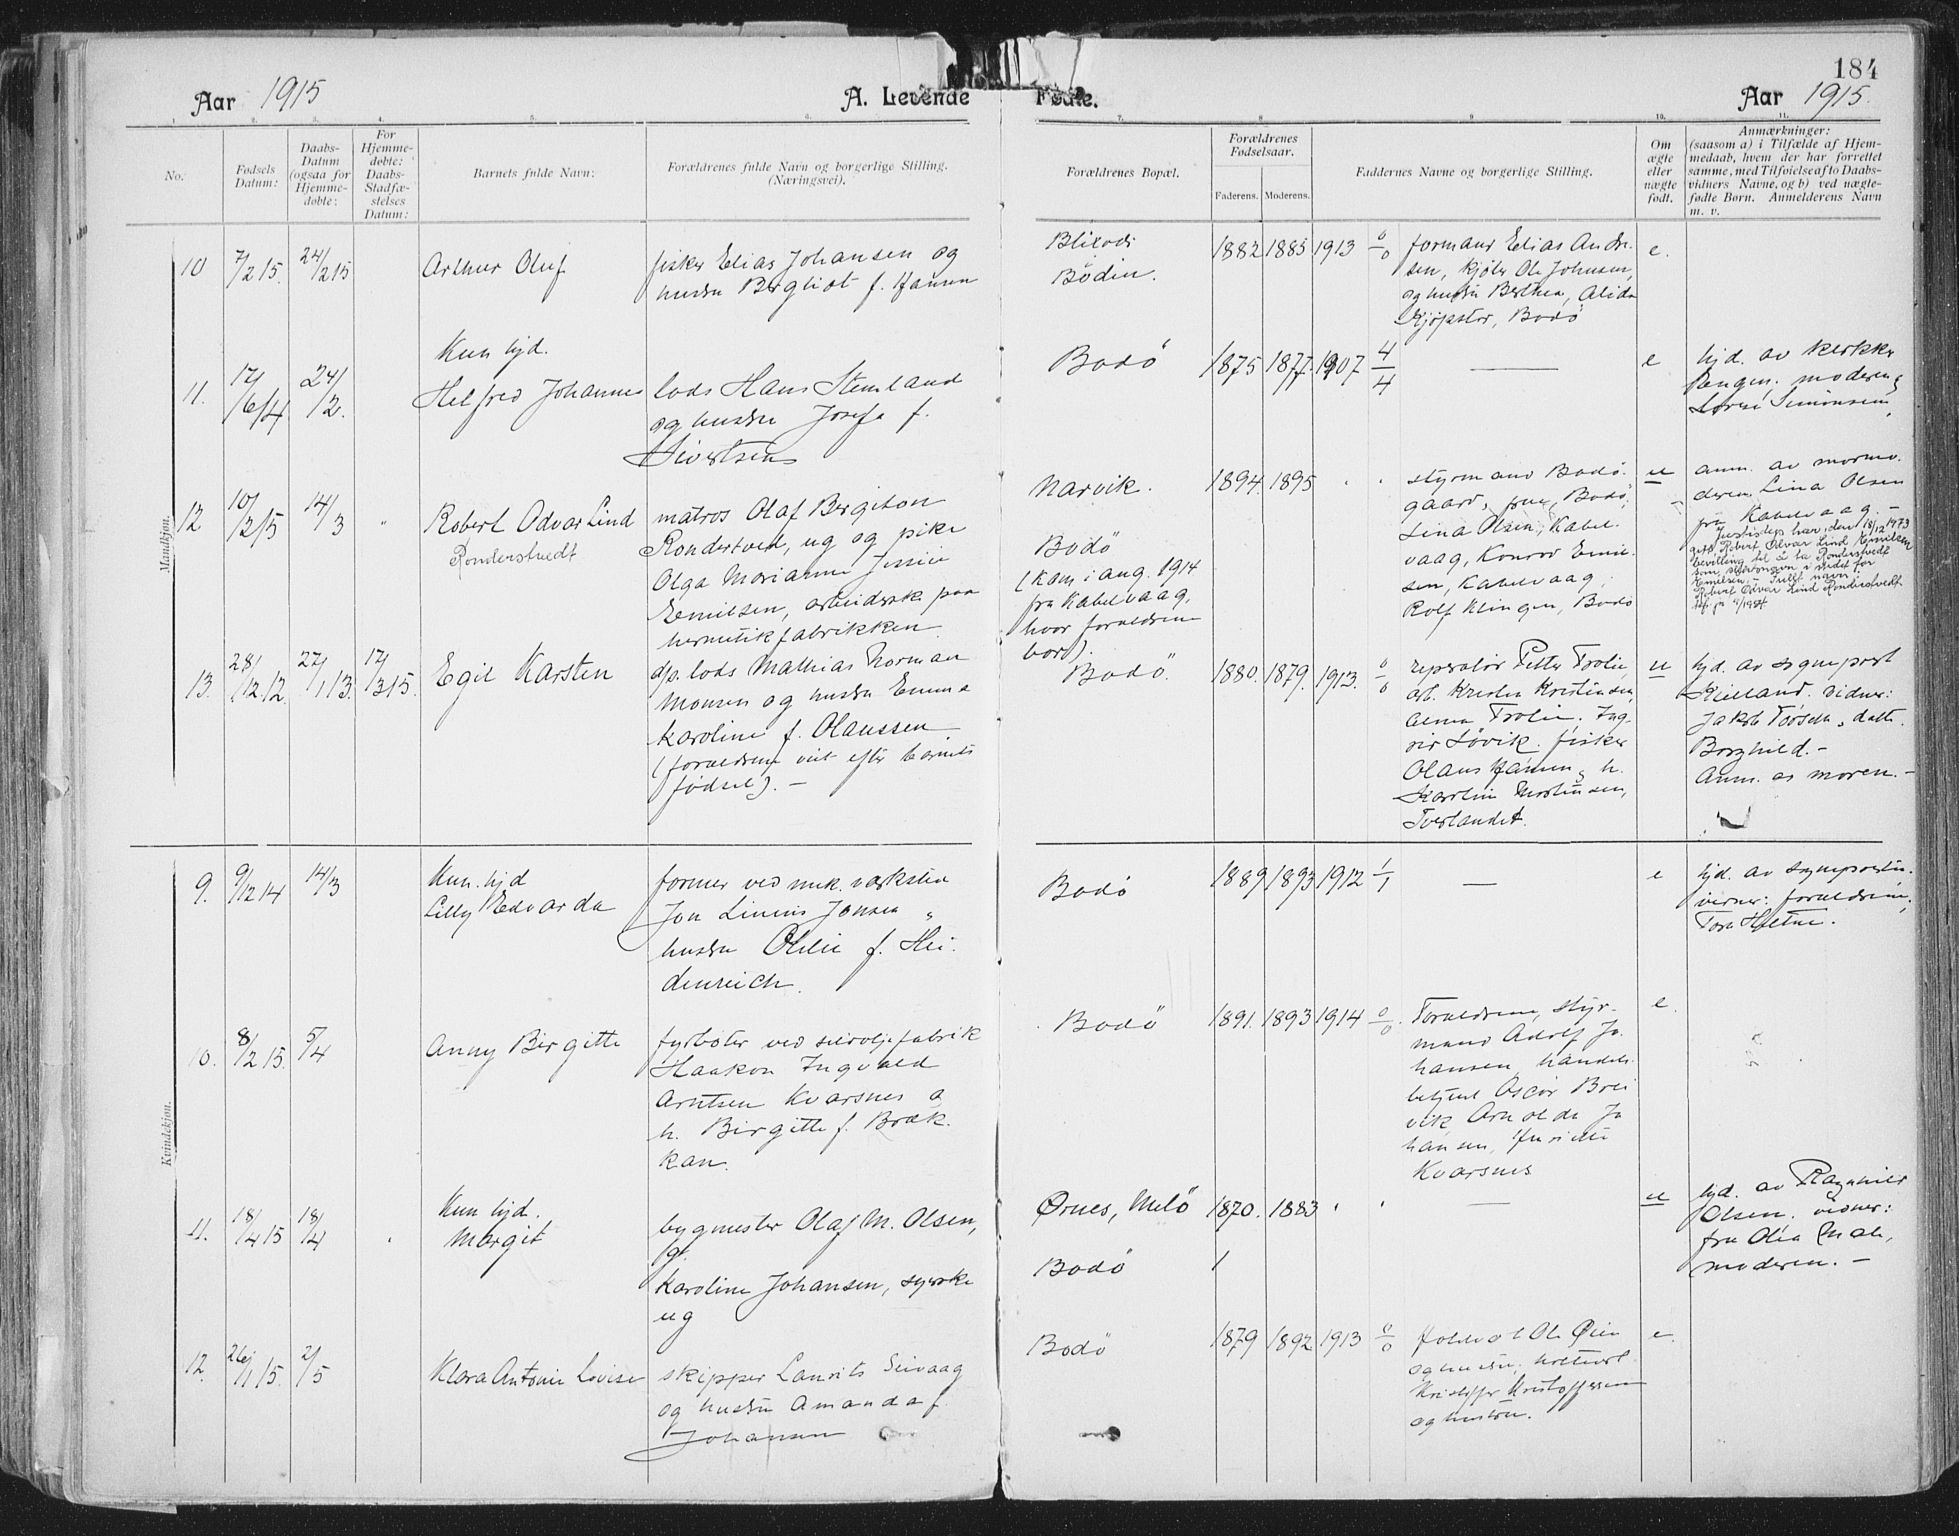 184
Aar 1915
A. Levende
Fødte.
Aar 1915.
No:
Fødsels Datum:
Daabs-Datum (ogsaa for Hjemmedøbte:
For Hjemmedøbte: Daabs-Stadfæstelses Datum:
Barnets fulde Navn:
Forældrenes fulde Navn og borgerlige Stilling.
(Næringsvei).
Forældrenes Bopæl.
Forældrenes Fødselsaar.
Faderens. Moderens.
Faddernes Navne og borgerlige Stilling.
Om ægte eller uægte født.
Anmærkninger:
(saasom a) i Tilfælde af Hjem-
medaab, hvem der har forrettet
samme, med Tilføielse af to Daabs-
vidners Navne, og b) ved uægte-
fødte Børn. Anmelderens Navn
m. v.
Mandkjøn.
10 7/2 15. 24/2 15
Arthur Oluf
fisker Elias Johansen og
hustru Bergliot f. Hansen
Bodin.
1882 1885 1913 0/0
formand Elias Andre-
sen, Ole Johnsen,
og hustru Berthea, Alida
Kjøpstad, Bodø
e.
11. 17/6 14 24/2.
Kun hjd.
Helfred Johannes
lods Hans Stemland
og hustru Josefa f.
Sivertsen
Bodö
1875 1877 1907 4/4
—
e
hjd. av
moderen,
Simonsen
12 10/3 15 14/3 "
Robert Odvar Lind
Ronderstvedt
matros Olaf Bergiton
Rondertved, ug og pike
Olga Marianne
Emilsen, arbeiderske paa
hermetikfabrikken
Narvik.
Bodö
(kom i aug. 1914
fra Kabelvaag,
hvor forældrene
bor).
1894. 1895
styrmand Bodø-
gaard, frue, Bodø,
Lina Olsen, Kabel-
vaag, Konrad Emil-
sen, Kabelvaag,
Rolf Klingen, Bodø
u
anm. av mormo-
deren Lina Olsen
fra Kabelvaag. -
Justisdep. har den 18/12 1973
gitt Robert Odvar Lind Emilsen
bevilling til å ta Ronderstvedt
som slektsnavn i stedet for
Emilsen. - Fullt navn:
Robert Odvar Lind Ronderstvedt
13. 28/12 12. 27/1 13. 17/3 15.
Egil Karsten
lods Mathias Norman
Monsen og hustru Emma
Karoline f. Olaussen
(forældrene viet efter barnets
fødsel). -
Bodö.
1880. 1879. 1913. 0/0
reperatør Petter Trolie,
arb. Kristen Kristensen,
Alma Trolie. Ing-
Løvik. fisker
Olaus Hansen, h.
Karoline Mortensen,
Tverlandet.
u
hjd. av sogneprest
Kielland. vidner:
datt.
Borghild. -
Anm. av moren. -
Kvindekjøn.
9. 9/12 14 14/3
Kun hjd
Lilly Edvarda
former ved mek. værksted
Jon Jensen
hustru f. Hei-
denreich.
Bodö
1889 1893 1912 1/1
—
e
hjd. av
vidner: forældrene,
Tora
10. 8/2 15. 5/4
Anny Birgitte
fyrbøter ved sildoljefabrik
Haakon Ingvald
Arntsen Kvarsnes og
h. Birgitte f. Bræk-
kan.
Bodö
1891. 1893 1914 0/0.
Forældrene, styr-
mand Adolf Jo-
hansen, handels-
betjent Oscar Brei-
vik, Arnolda Jo-
hansen,
Kvarsnes
e.
11. 18/4 15 18/4
Kun hjd.
Margit
bygmester Olaf M. Olsen,
g.
Karoline Johansen, syerske
ug
Ørnes, Melö
Bodö
1870. 1883
—
u
hjd. av
Olsen. vidner:
fru
moderen. -
12. 26/1 15. 2/5
Klara Antonie Lovise
skipper Laurits Seivaag
og hustru Amanda f.
Johansen
Bodö
1879 1892 1913 0/0
Ole Øien
og hustru,
Kristoffer Kristoffersen
og hustru.
e.